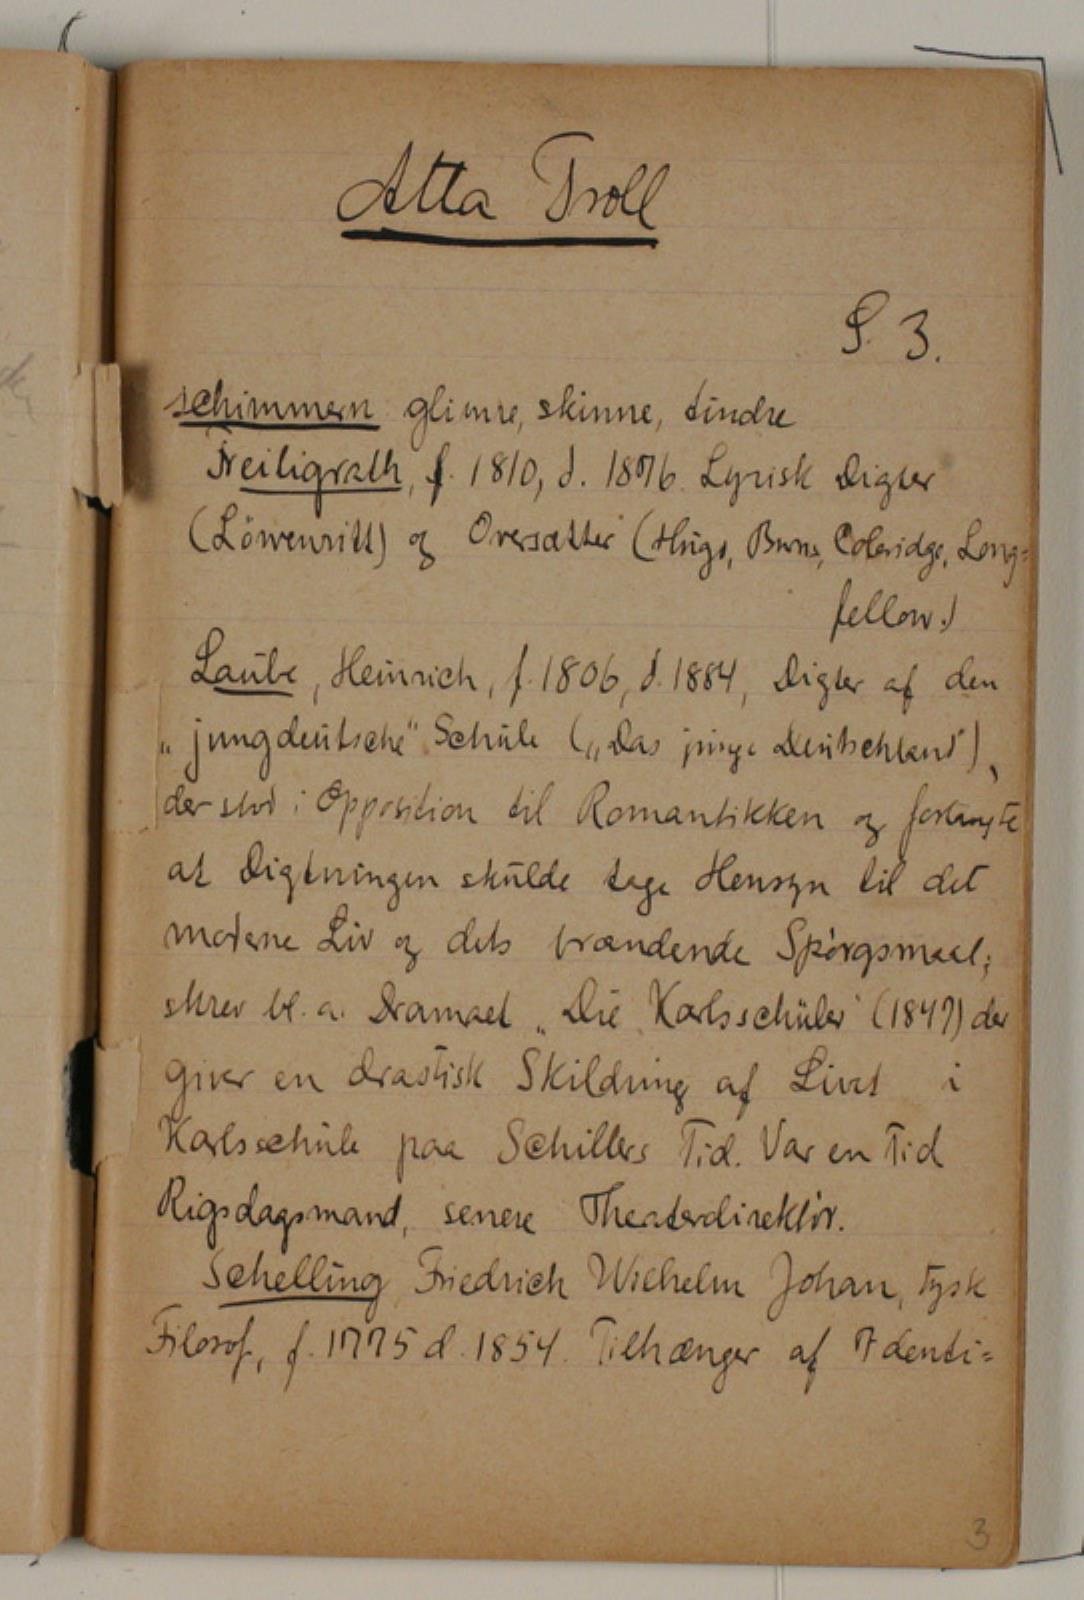 Atta Troll
S. 3.
schimmern glimre, skinne, tindre
Freiligrath, f. 1810, d. 1876. Lyrisk Digter
(Löwenritt) og Oversætter (Hugo, Burns, Coleridge, Long=
fellow.)
Laube, Heinrich, f. 1806, d. 1884, Digter af den
„jungdeutsche" Schule („Das junge Deutschland"),
der stod i Opposition til Romantikken og forlangte
at Digtningen skulde tage Hensyn til det
moderne Liv og dets brændende Spørgsmaal;
skrev bl. a. Dramaet „Die Karlsschüler" (1847) der
giver en drastisk Skildring af Livet i
Karlsschule paa Schillers Tid. Var en Tid
Rigsdagsmand, senere Theaterdirektör.
Schelling, Friedrich Wilhelm Johan, tysk
Filosof, f. 1775 d. 1854. Tilhænger af Identi=
3